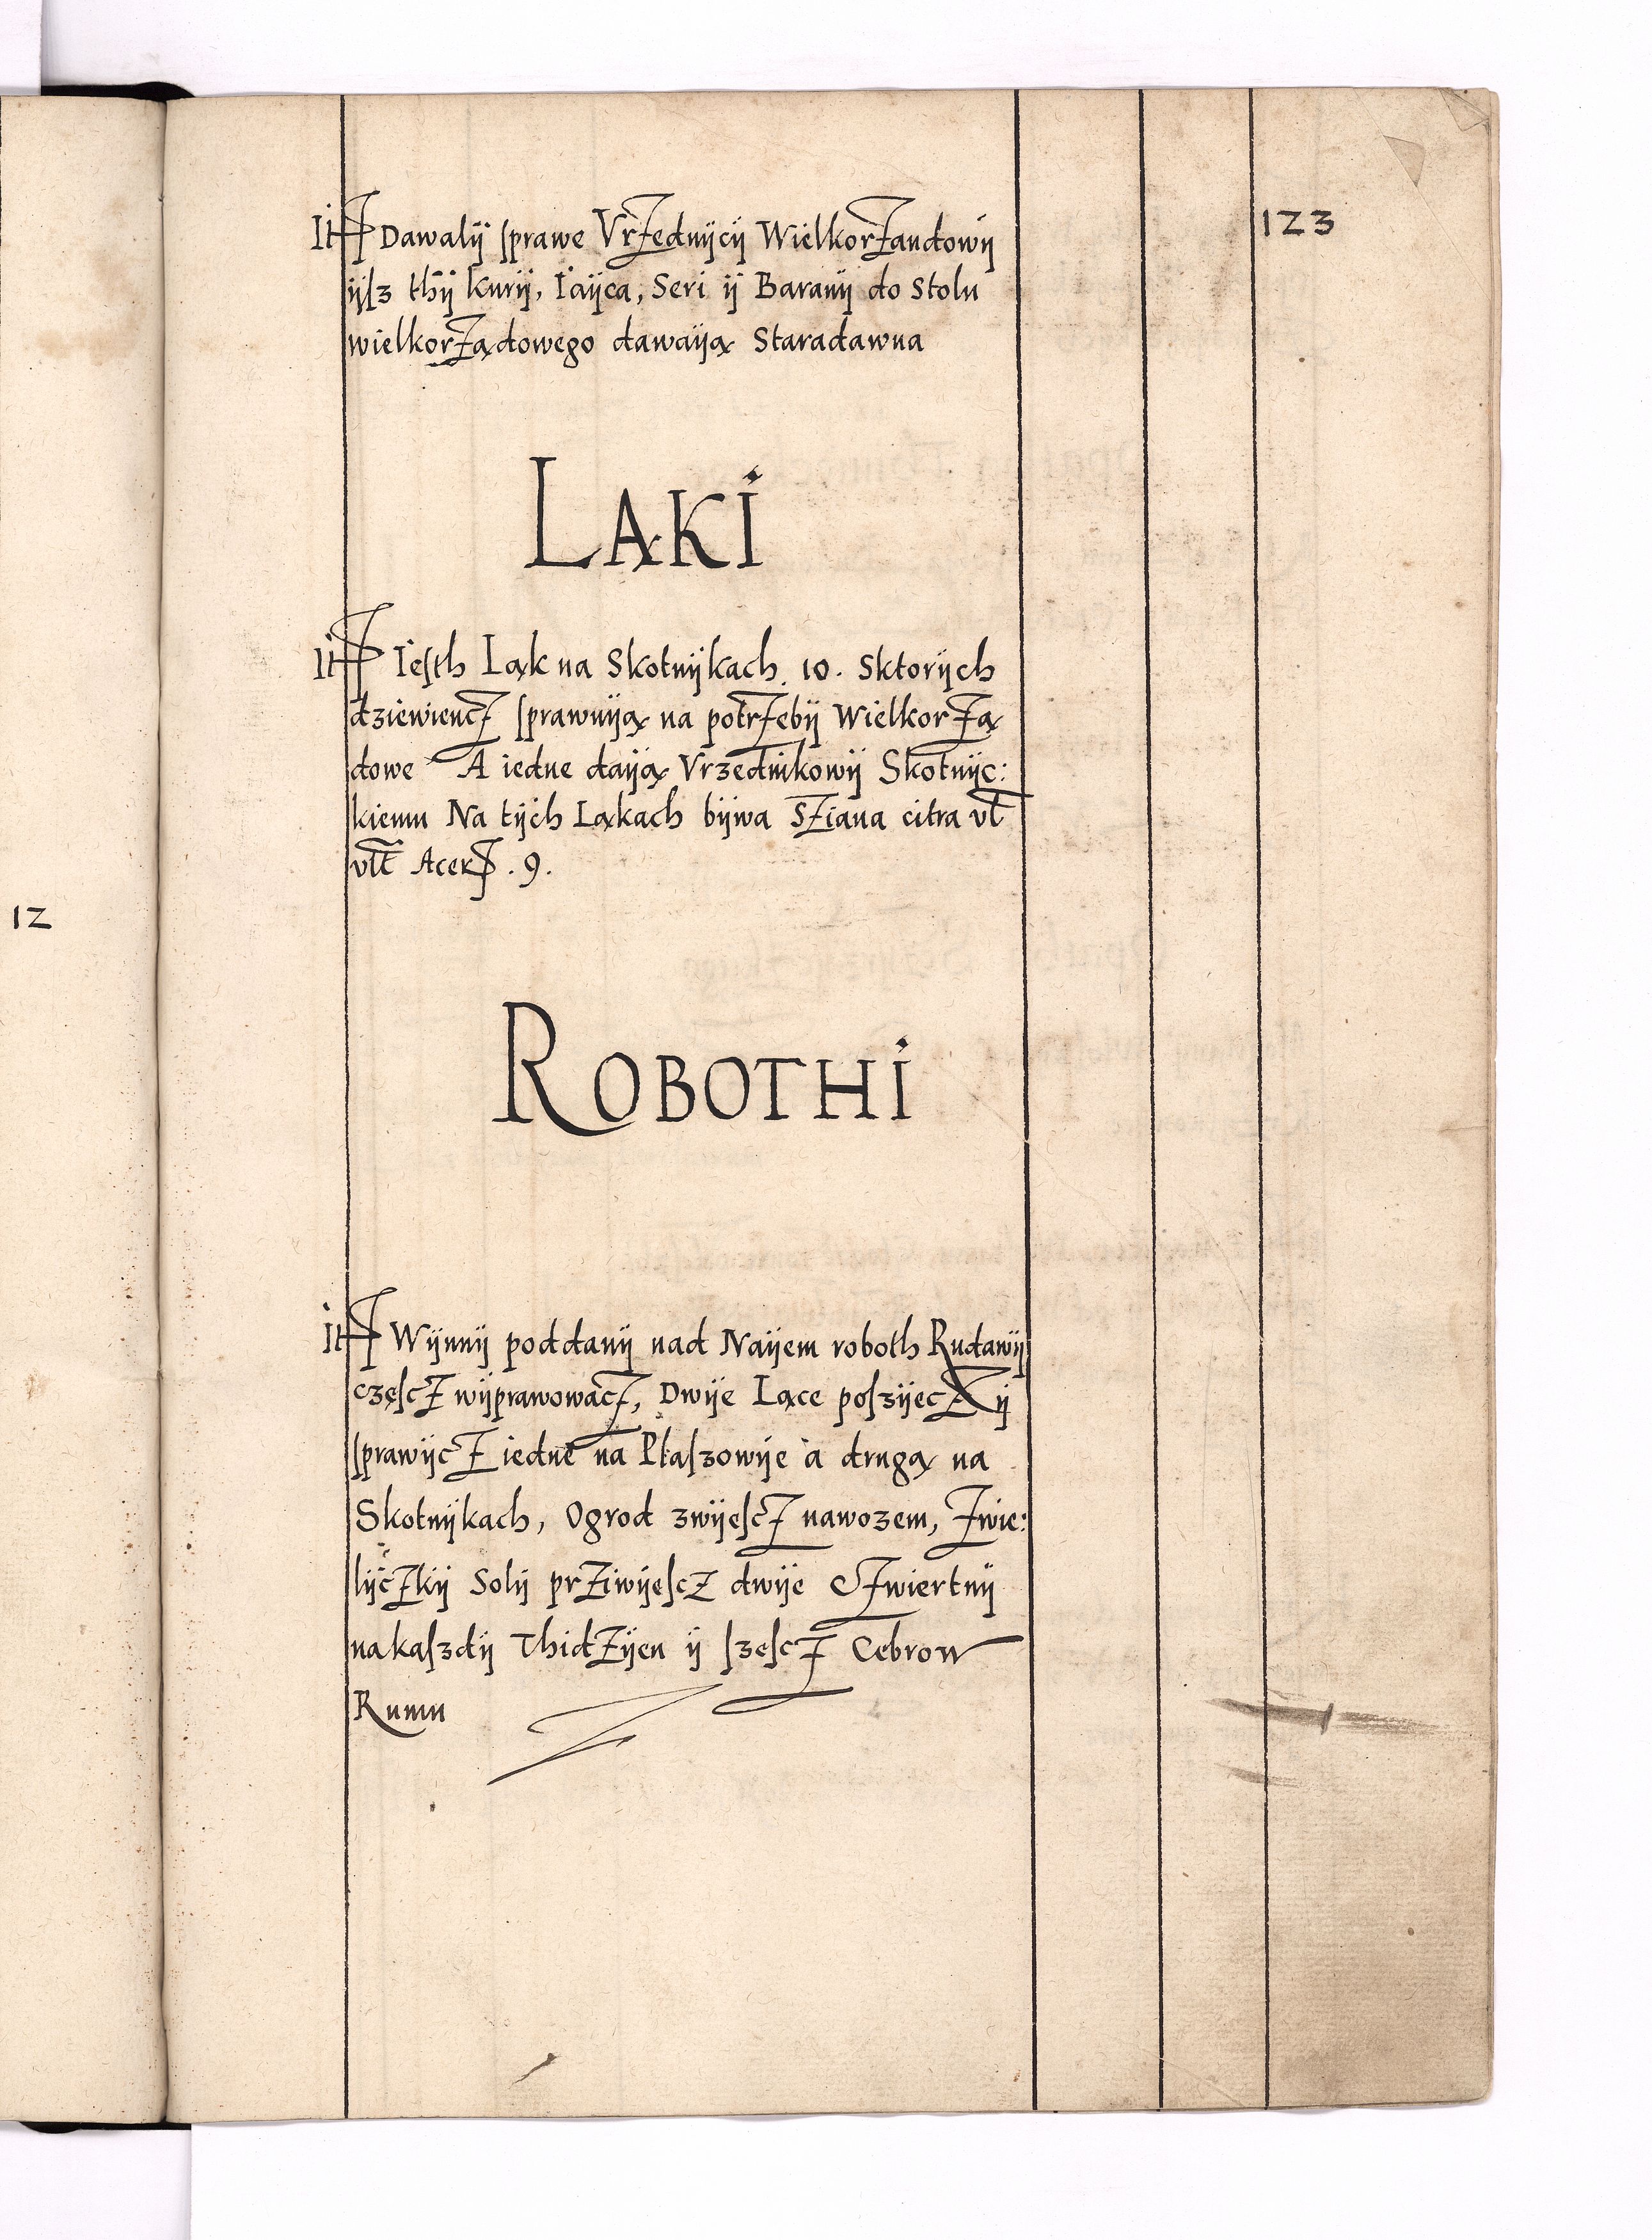 123
It Dawalÿ sprawe Vrzednÿcÿ Wielkorzandowÿ
ÿsz thÿ Kurÿ, Iaÿca, Seri ÿ Baranÿ do Stolu
wielkorządowego dawaÿą Staradawna
LĄKI
It Iesth Ląk na Skotnÿkach. 10. Sktorÿch
dziewiencz sprawuÿą na potrzebÿ Wielkorzą
dowe A iedne daÿą Vrzednikowÿ Skotnÿc:
kiemu Na tÿch Ląkach bÿwa Sziana citra vl
vlt Acer. 9.
ROBOTHI
It Wÿnnÿ poddanÿ nad Naÿem roboth Rudawÿ
częscz wÿprawowacz, Dwÿe Lące poszÿecz ÿ
sprawÿcz iedne na Płaszowÿe a drugą na
Skotnÿkach, Ogrod zwÿescz nawozem, zwie:
lÿczkÿ Solÿ prziwÿescz dwÿe Czwiertnÿ
nakaszdÿ Thidzÿen ÿ szescz Cebrow
Rumu
12